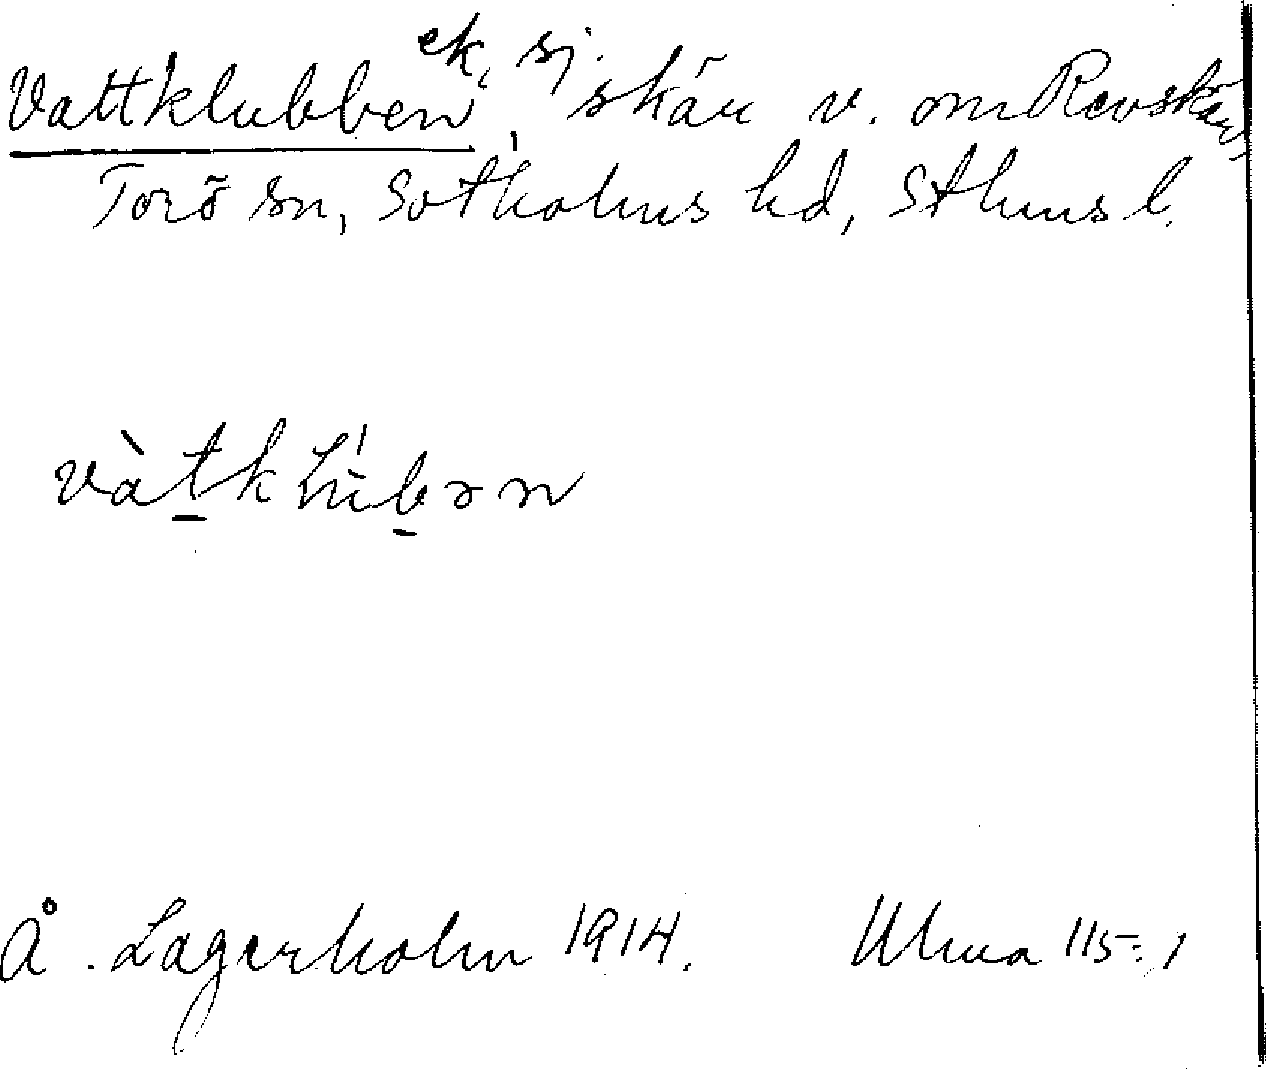 Vattklubben, ek, sj. skär v. om Revskär,
Torö sn, Sotholms hd, Sthms l.
vàtklùbən
Å. Lagerholm 1914. Ulma 115:1